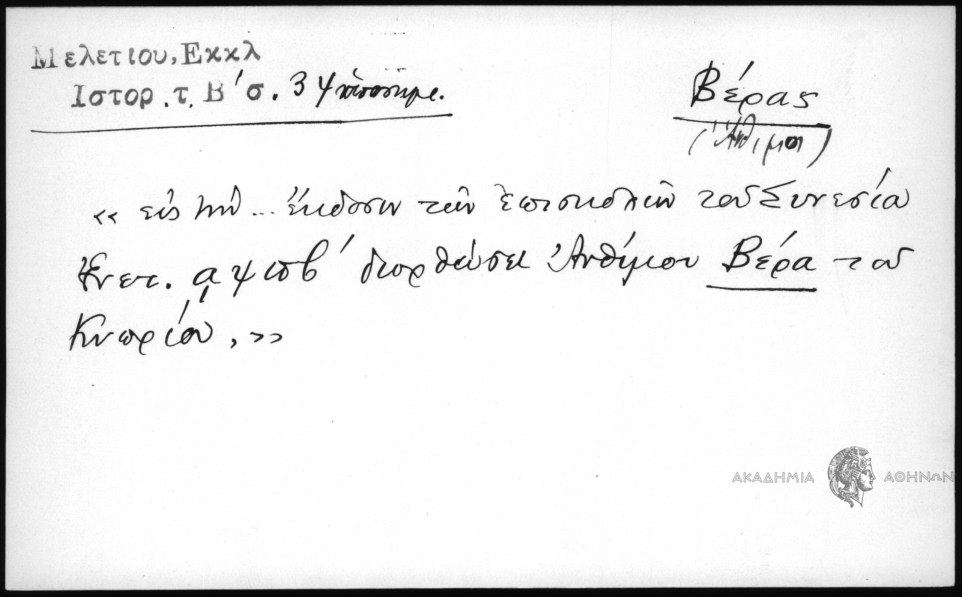 Μελετίου, Εκκλ
Ιστορ. τ. Β΄ σ. 34 ὑποσημ.
Βέρας
(Ἄνθιμος)
«εἰς τὴν ... ἔκδοσιν τῶν ἐπιστολῶν τοῦ Συνεσίου
Ἑνετ. αψϟβ΄ διορθώσει Ἀνθίμου Βέρα τοῦ
Κυπρίου, »
ΑΚΑΔΗΜΙΑ ΑΘΗΝΩΝ